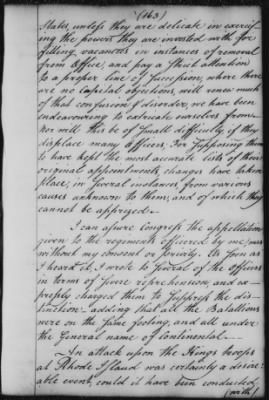 (163)
States, unless they are delicate in exercis-
ing the powers they are invested with for
filling vacancies in instances of removal
from Office, and pay a strict attention
to a proper line of succession, where there
are no Capital objections, will renew much
of that confusion & disorder, we have been
endeavouring to extricate ourselves from
nor will this be of small difficulty if they
displace many Officers; For supposing them
to have kept the most accurate lists of their
original appointments, changes have taken
place, in several instances, from various
causes unknown to them, and of which they
cannot be apprized.
I can assure Congress the appellation
given to the regiments officered by me, was
without my consent or privity. As soon as
I heard it, I wrote to several of the officers
in terms of severe reprehension, and ex-
pressly charged them to suppress the dis-
tinction: adding that all the Batallions
were on the same footing, and all under
the General name of Continental.
An attack upon the Kings troops
at Rhode Island was certainly a desir-
able event, could it have been conducted
(with)